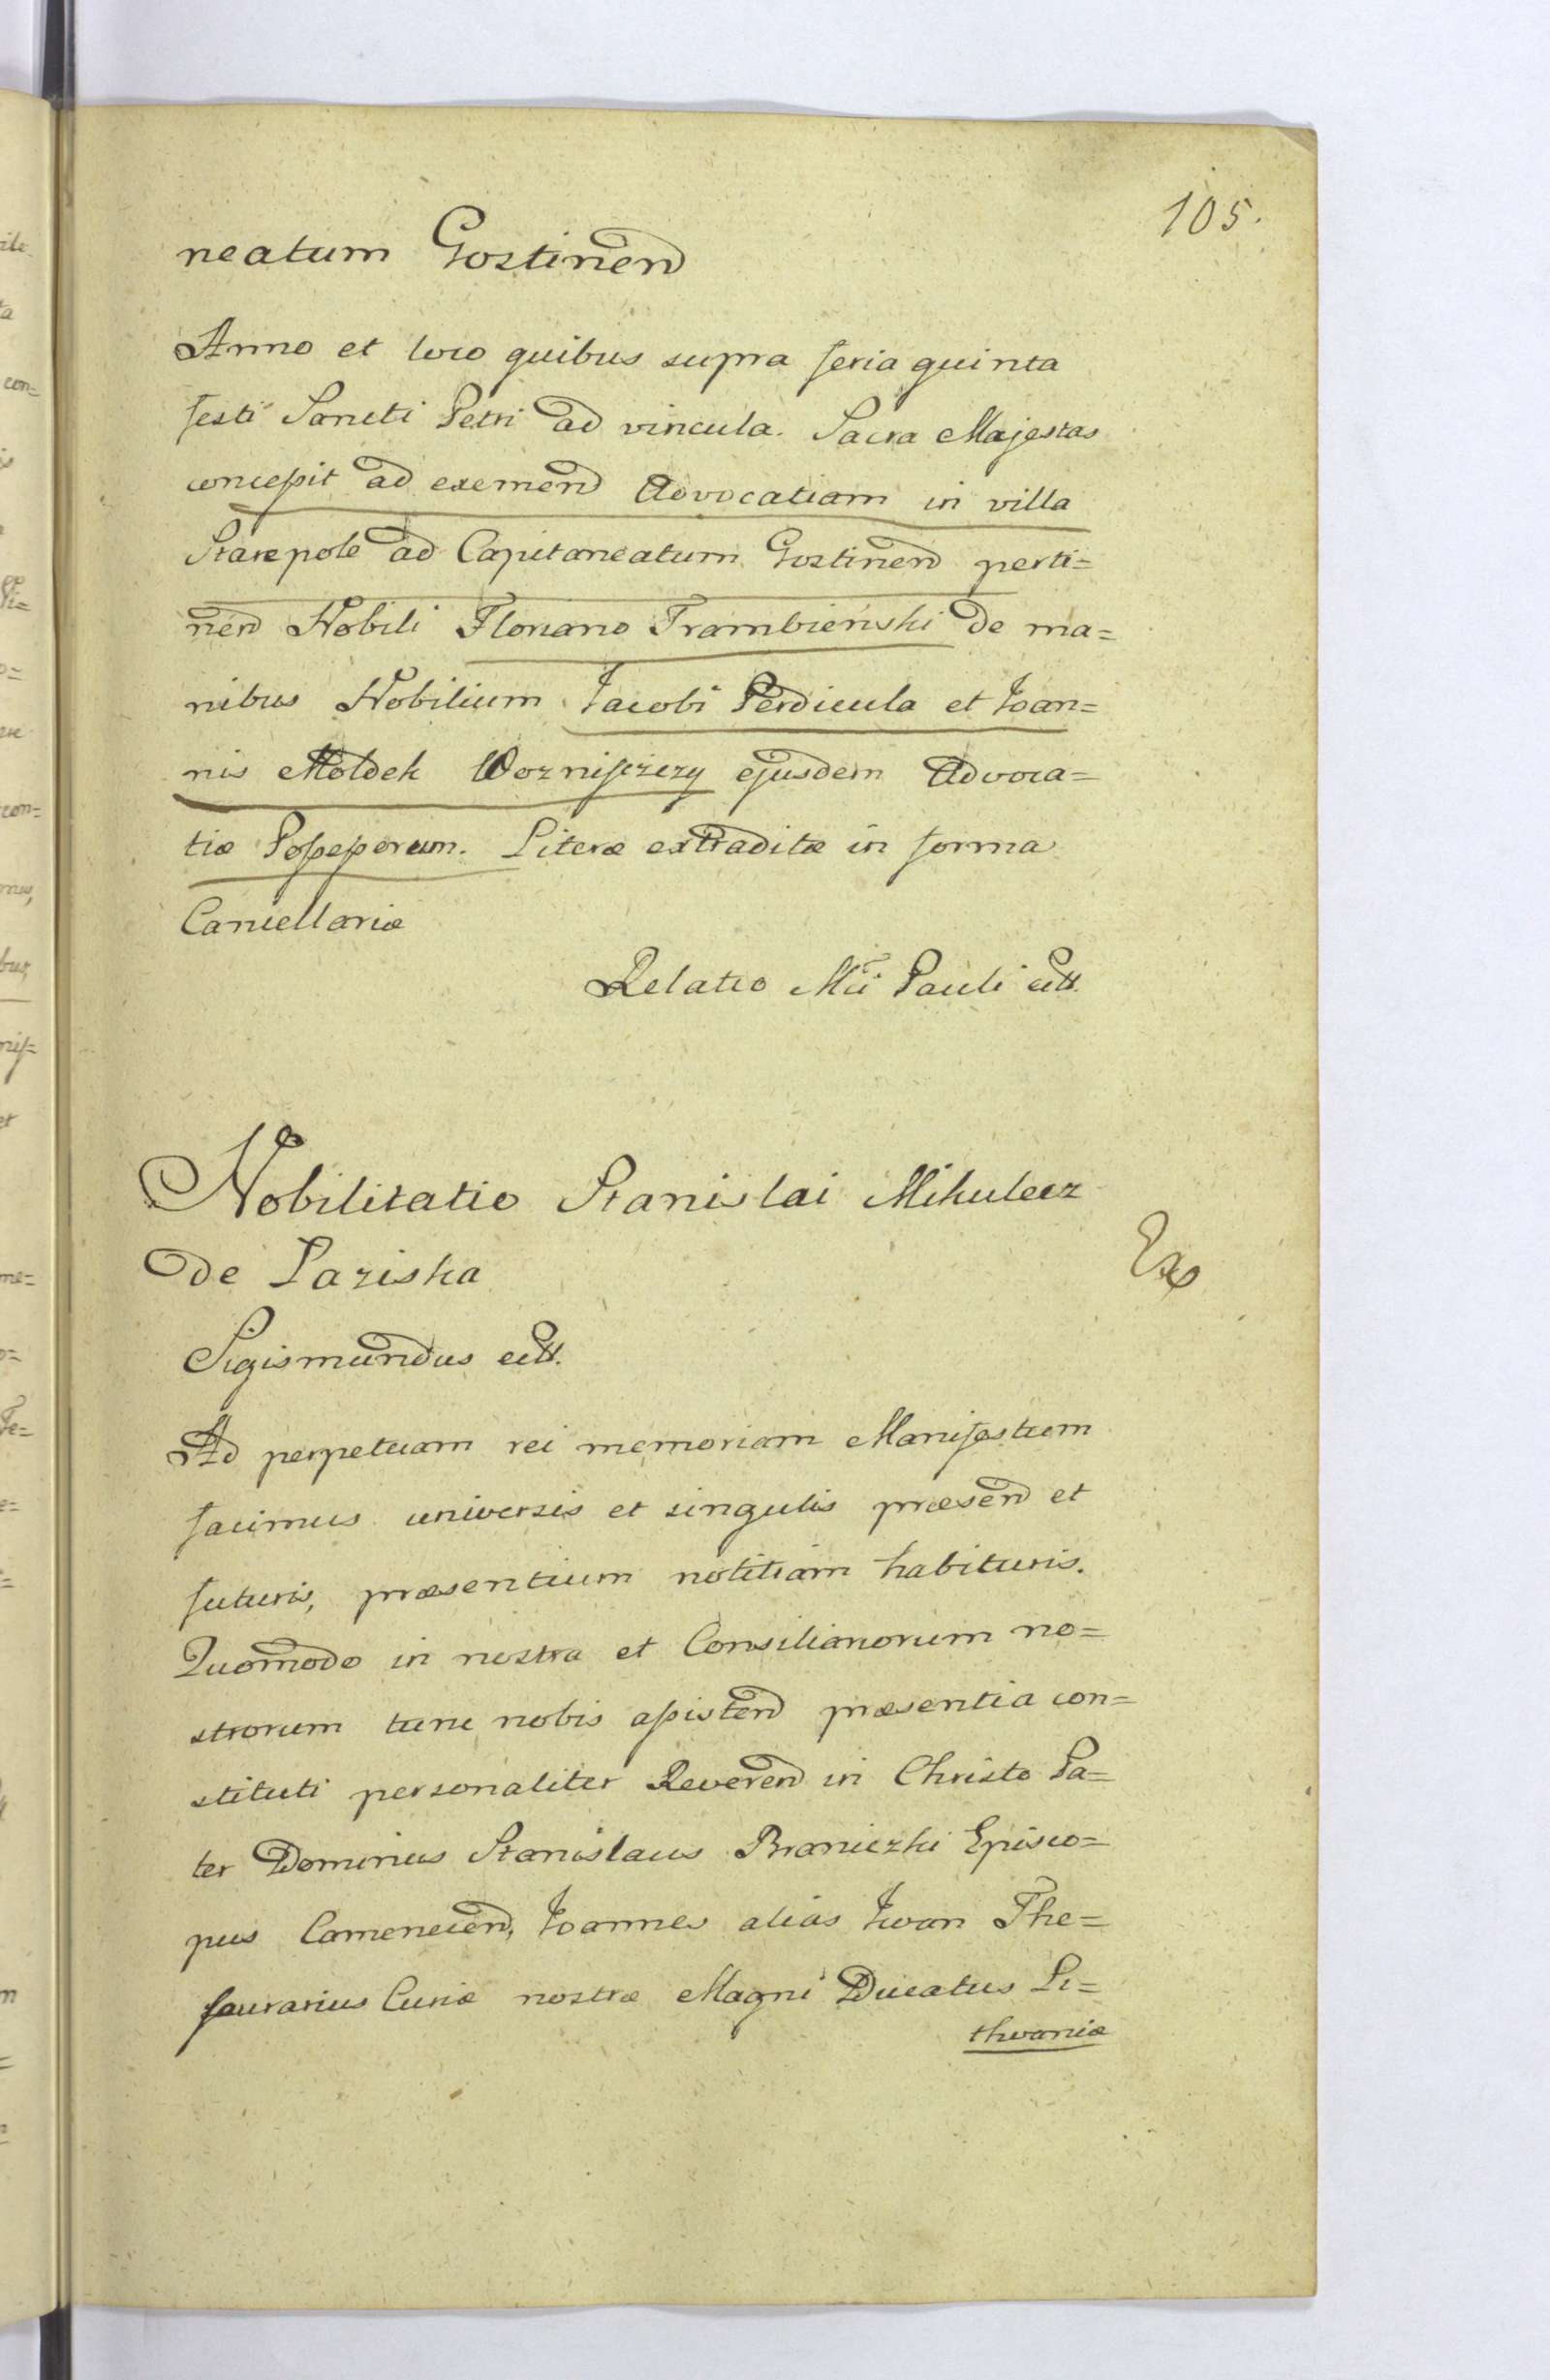 105.
neatum Gostinen̄d
Anno et loco quibus supra feria quinta
festi Sancti Petri ad vincula. Sacra Majestas
concessit ad exemen̄d Advocatiam in villa
Starepole ad Capitaneatum Gostinen̄d perti=
nen̄d Nobili Floriano Trambieński de ma=
nibus Nobilium Jacobi Perdicula et Joan=
nis Moldek Wozniſczczy ejusdem Advoca=
tiæ Poſseſsorum. Literæ extraditæ in forma
Cancellariæ
Relatio Mci Pauli ett.
Nobilitatio Stanislai Mikulecz
de Laziska
Ex
Sigismundus ett.
Ad perpetuam rei memoriam Manifestum
facimus universis et singulis præsen̄d et
futuris, præsentium notitiam habituris.
Quomodo in nostra et Consiliariorum no=
strorum tunc nobis aſsisten̄d præsentia con=
stituti personaliter Reveren̄d in Christo Pa=
ter Dominus Stanislaus Braniczki Episco=
pus Camenecen̄d, Joannes alias Iwan The=
ſaurarius Curiæ nostræ Magni Ducatus Li=
thvaniæ